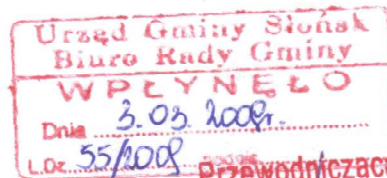 Urząd Gminy Słońsk
Biuro Rady Gminy
WPŁYNĘŁO
Dnia 3.03.2009r.
L.Dz. 55/2009
Przewodniczący